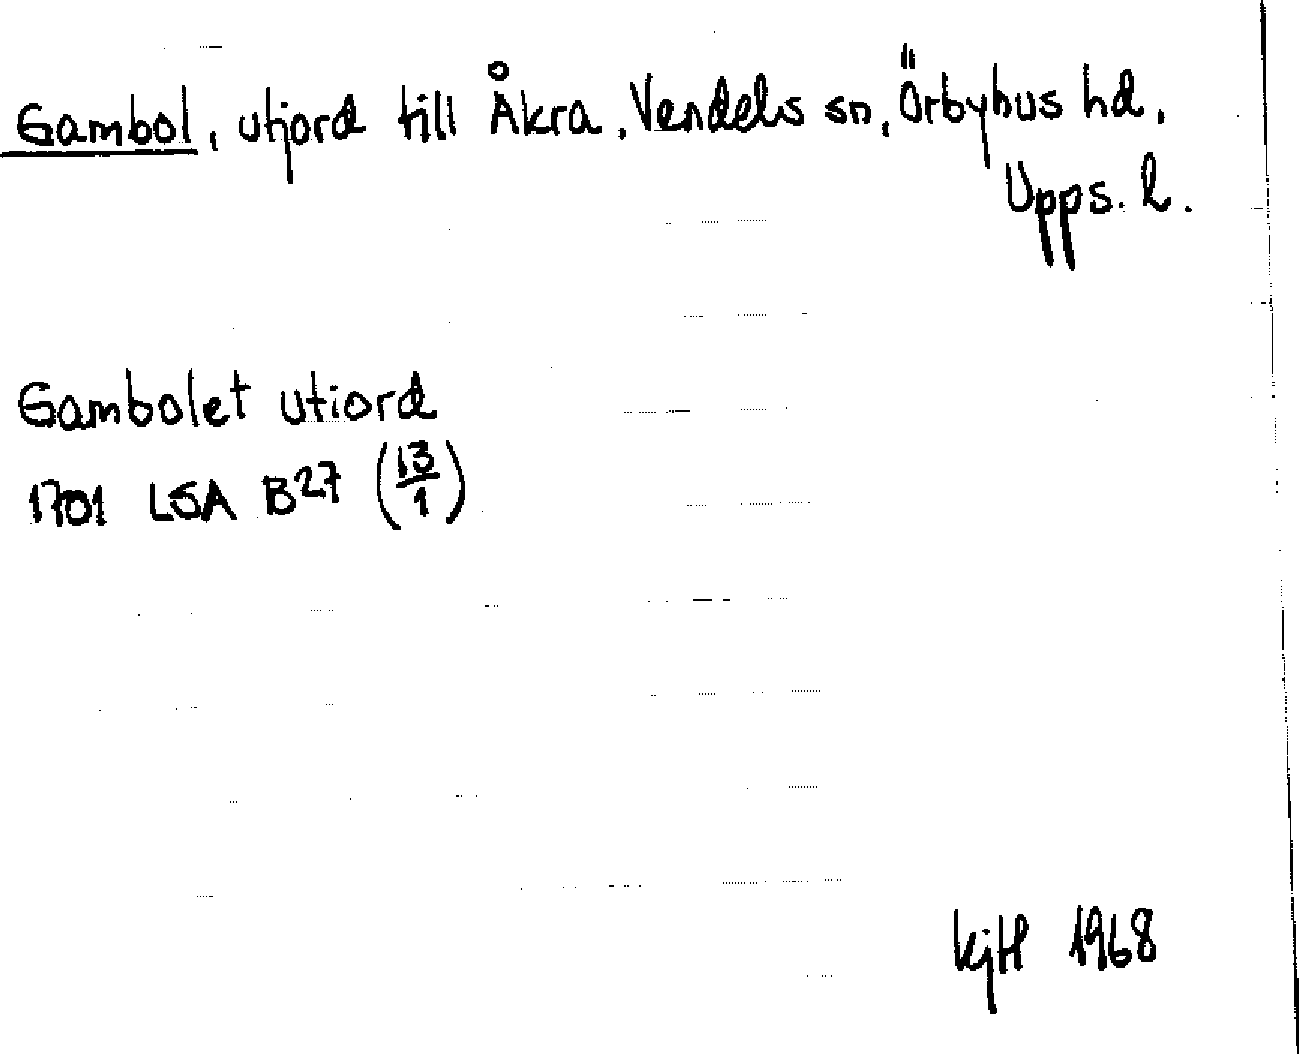 Gambol, utjord till Åkra, Vendels sn, Örbyhus hd,
Upps. l.
Gambolet utiord
1701 LSA B27 (13/1)
1968